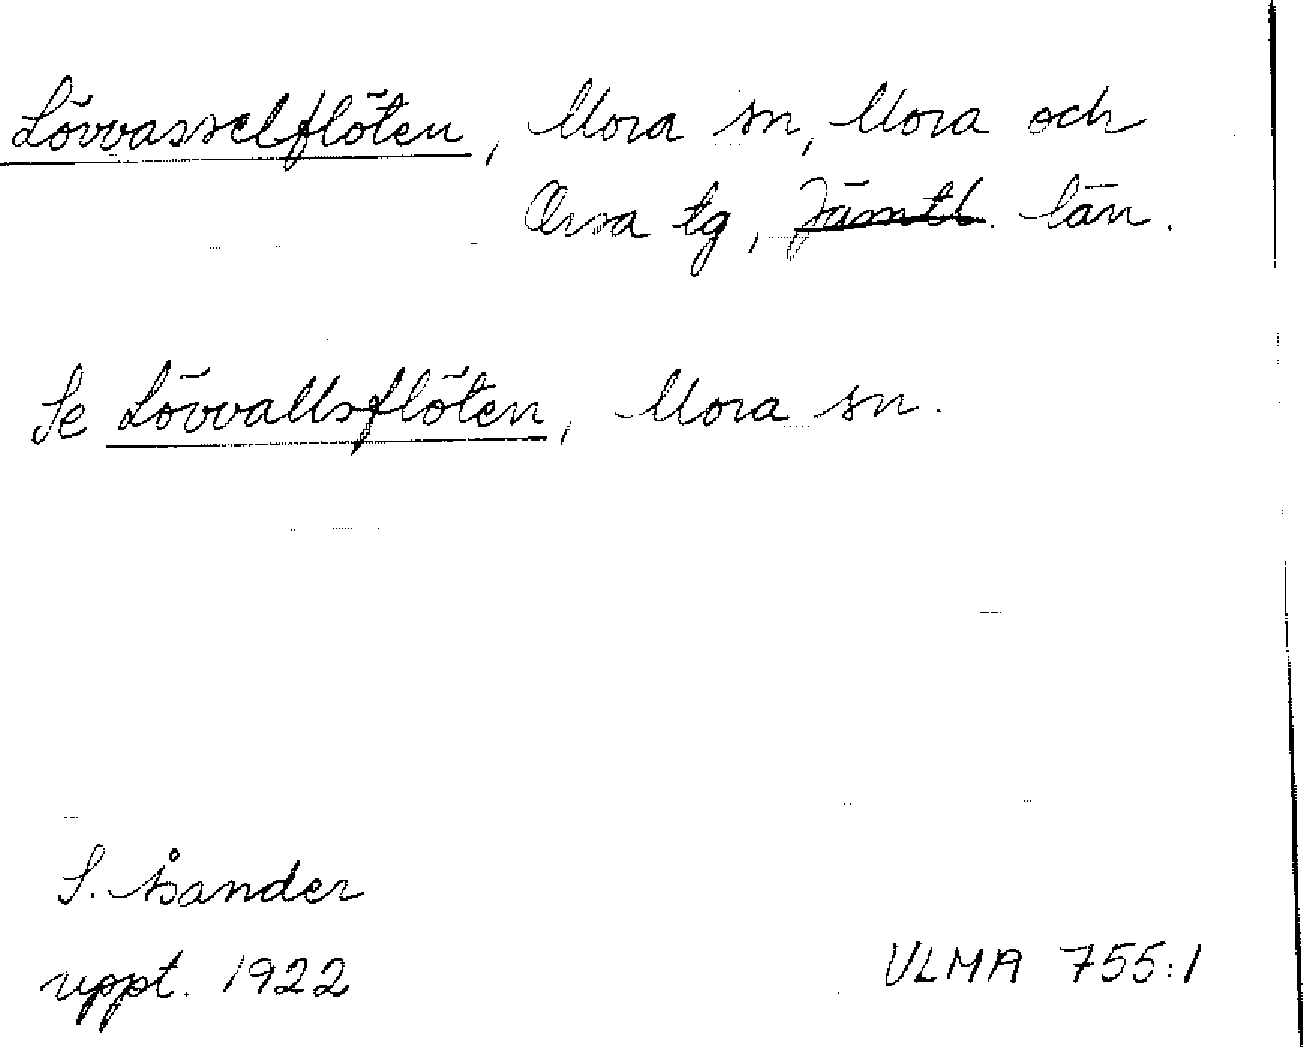 Lövvasselflöten, Mora sn, Mora och
Orsa tg, Jämtl. län.
Se Lövvallsflöten, Mora sn.
S. Åsander
uppt. 1922
ULMA 755:1